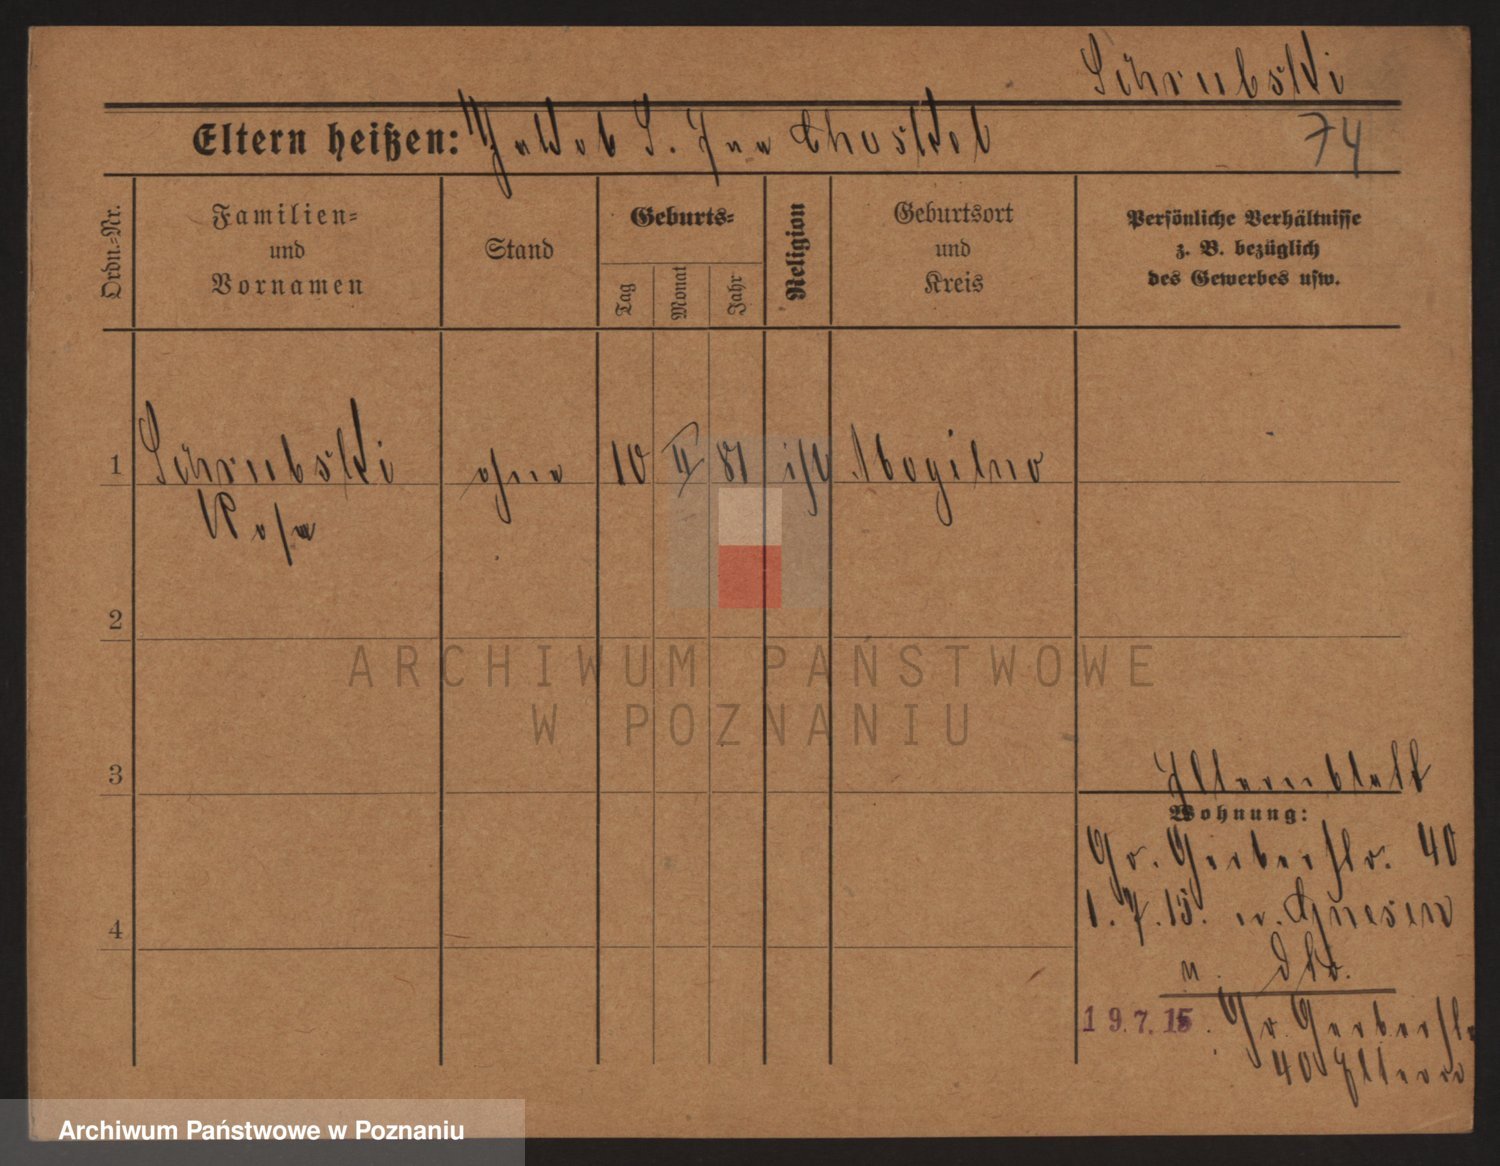 Schrubski
Eltern heißen: Jakob S. Ina Chaskel
74
Ordn.-Nr.
Familien-
und
Vornamen
Stand
Geburts-
Tag
Monat
Jahr
Religion
Geburtsort
und
Kreis
Persönliche Verhältnisse
z. B. bezüglich
des Gewerbes usw.
1 Schrubski ohne 10 II 81 isr Mogilno
Rosa
2
ARCHIWUM PAŃSTWOWE
W POZNANIU
3
Elternblatt
Wohnung:
Gr. Gerberstr. 40
1.7.15. n. Gnesen
4
19.7.15. Gr. Gerberstr
40 Eltern
Archiwum Państwowe w Poznaniu